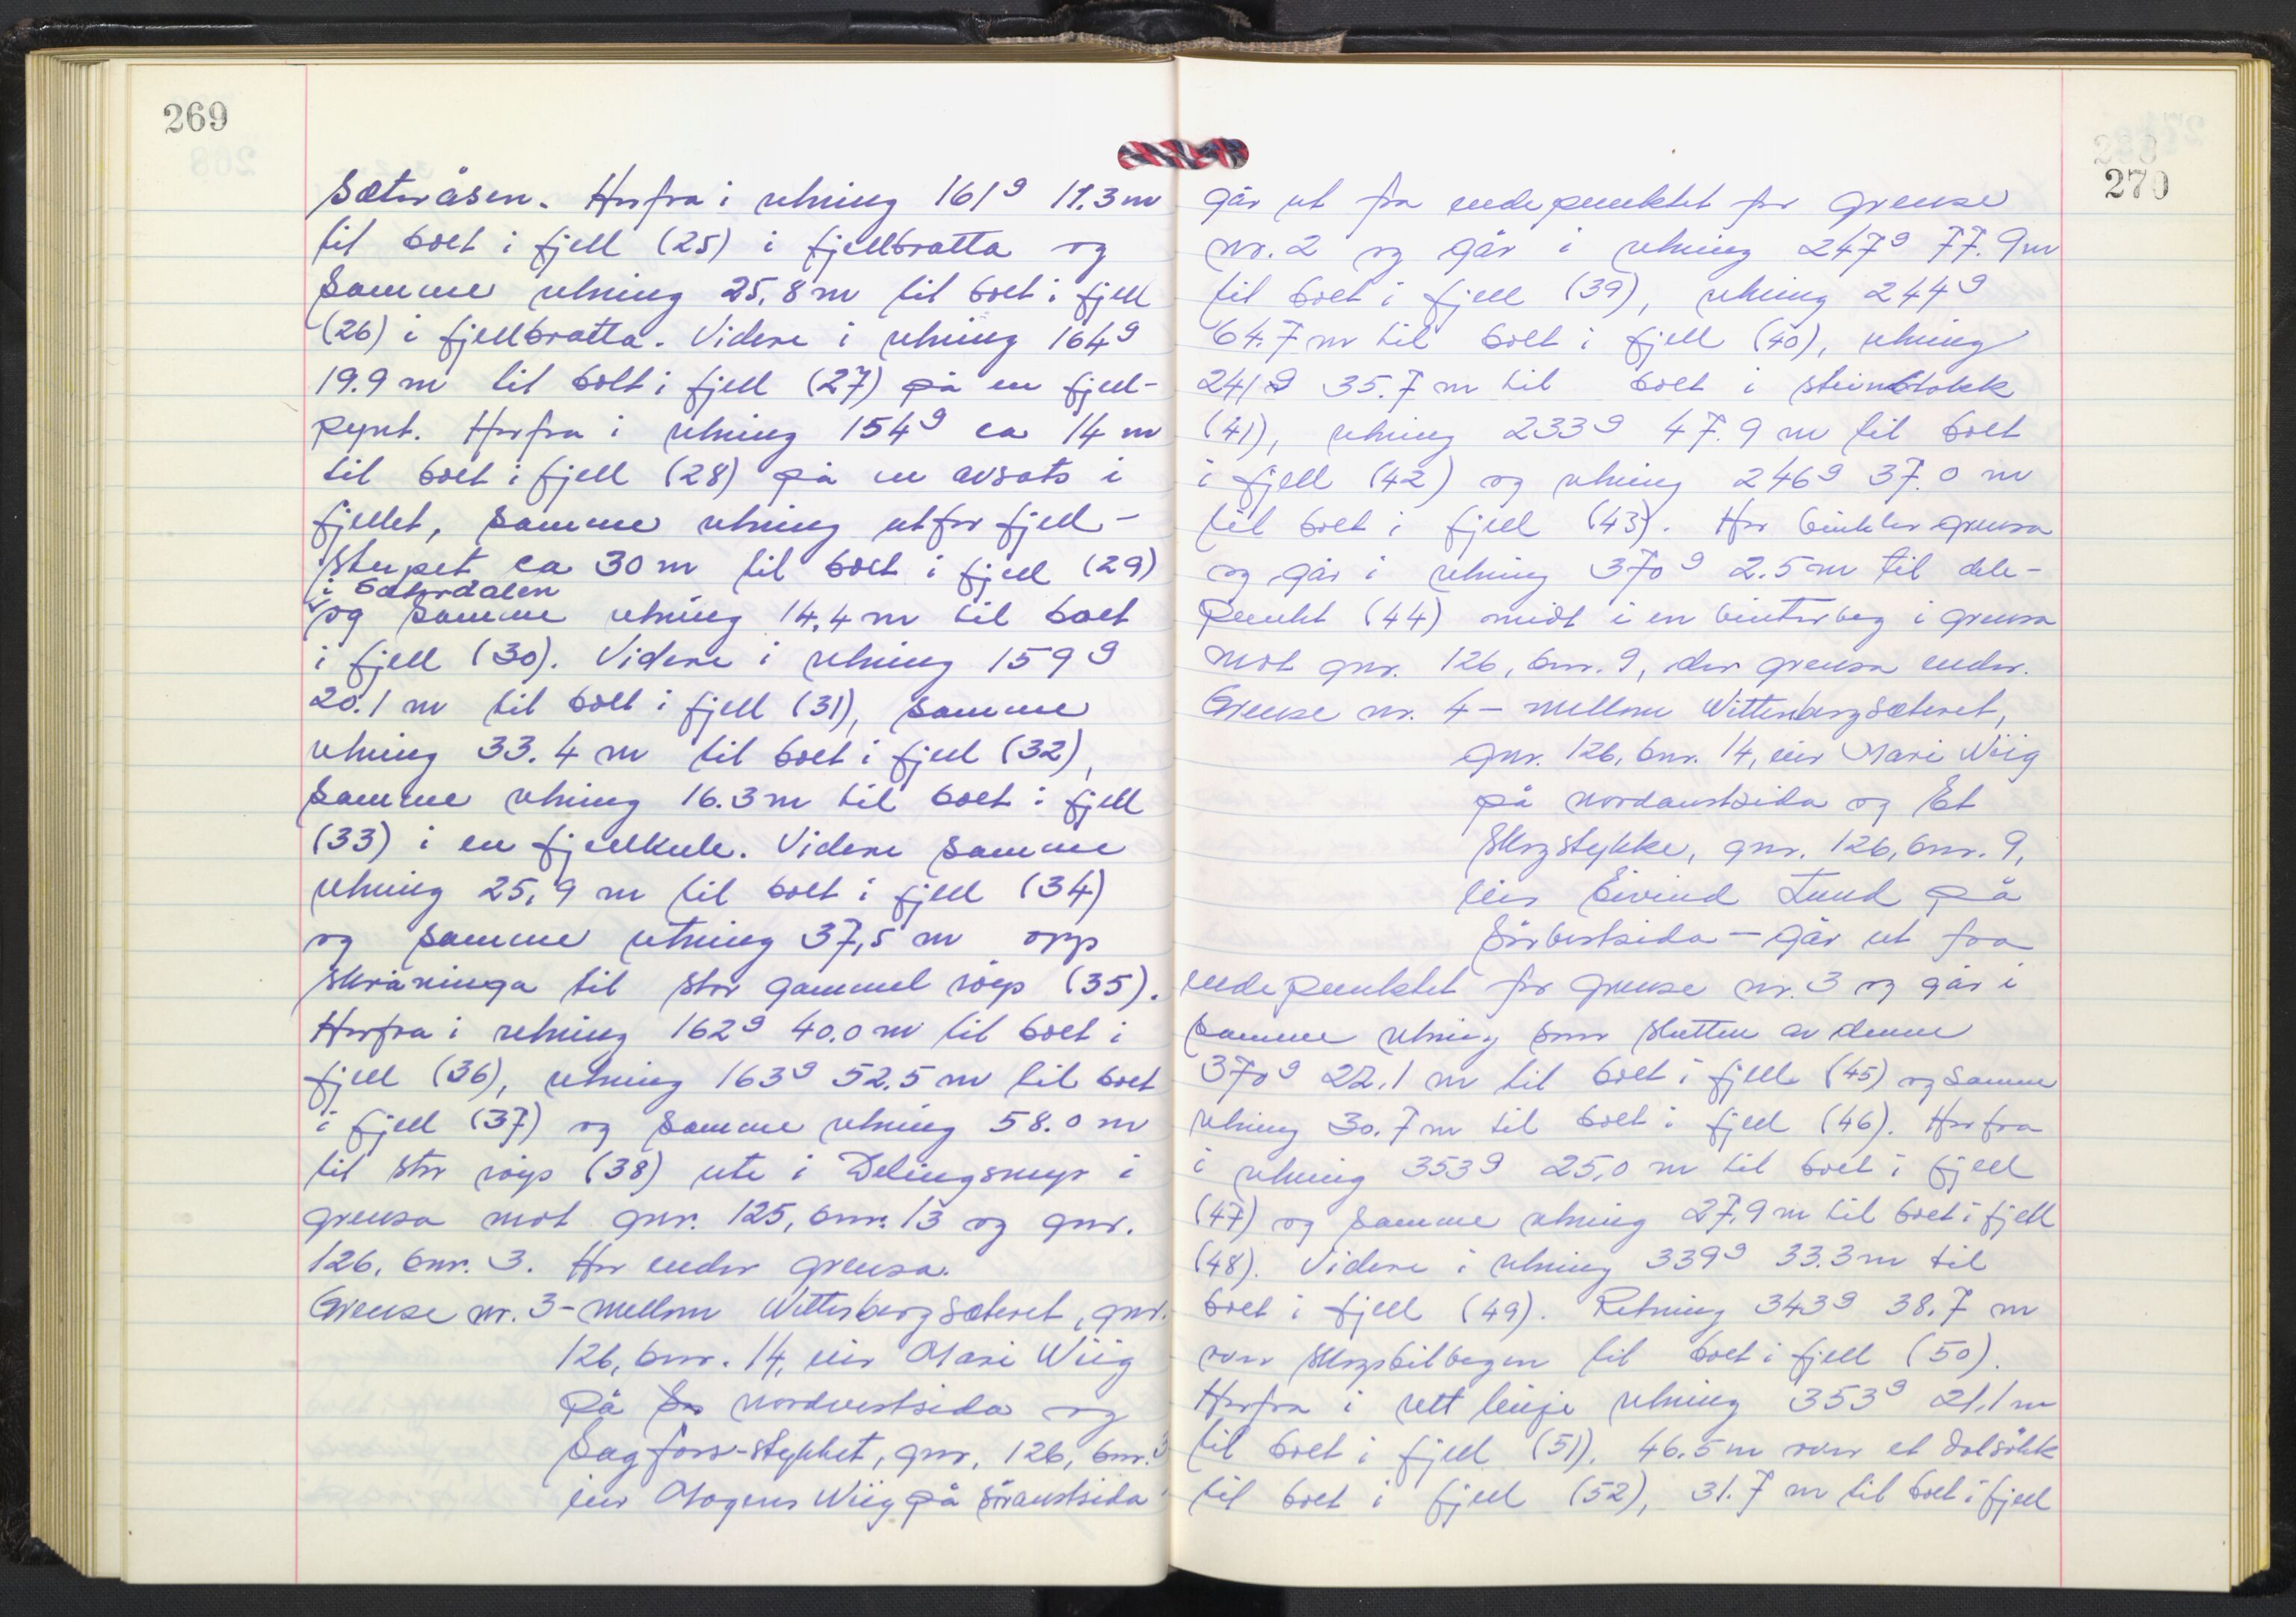 269
Sæteråsen. Herfra i retning 161g 11.3 m
til bolt i fjell (25) i fjellbratta og
samme retning 25,8 m til bolt i fjell
(26) i fjellbratta. Videre i retning 164g
19.9 m til bolt i fjell (27) på en fjell-
pynt. Herfra i retning 154g ca 14 m
til bolt i fjell (28) på en avsats i
fjellet, samme retning utfor fjell-
stupet ca 30 m til bolt i fjell (29)
i Sæterdalen
og samme retning 14,4 m til bolt
i fjell (30). Videre i retning 159g
20.1 m til bolt i fjell (31), samme
retning 33.4 m til bolt i fjell (32),
samme retning 16.3 m til bolt i fjell
(33) i en fjellkule. Videre samme
retning 25,9 m til bolt i fjell (34)
og samme retning 37,5 m opp
skråninga til stor gammel røys (35).
Herfra i retning 162g 40.0 m til bolt i
fjell (36), retning 163g 52.5 m til bolt
i fjell (37) og samme retning 58.0 m
til stor røys (38) ute i Delingsmyr i
grensa mot gnr. 125, bnr. 13 og gnr.
126, bnr. 3. Her ender grensa.
Grense nr. 3 - mellom Wittenbergsæteret, gnr.
126, bnr. 14, eier Mari Wiig
på nordvestsida og
Sagfoss-stykket, gnr. 126, bnr. 3
eier Mogens Wiig på søraustsida
270
går ut fra endepunktet for grense
nr. 2 og går i retning 247g 77.9 m
til bolt i fjell (39), retning 244g
64.7 m til bolt i fjell (40), retning
241g 35.7 m til bolt i steinblokk
(41), retning 233g 47.9 m til bolt
i fjell (42) og retning 246g 37.0 m
til bolt i fjell (43). Her vinkler grensa
og går i retning 370g 2.5 m til dele-
punkt (44) midt i en vinterveg i grensa
mot gnr. 126, bnr. 9, der grensa ender.
Grense nr. 4 - mellom Wittenbergsæteret,
gnr. 126, bnr. 14, eier Mari Wiig
på nordaustsida og Et
skogstykke, gnr. 126, bnr. 9,
eier Eivind Lund på
sørvestsida - går ut fra
endepunktet for grense nr. 3 og går i
samme retning som slutten av denne
370g 22.1 m til bolt i fjell (45) og samme
retning 30.7 m til bolt i fjell (46). Herfra
i retning 353g 25,0 m til bolt i fjell
(47) og samme retning 27.9 m til bolt i fjell
(48). Videre i retning 339g 33.3 m til
bolt i fjell (49). Retning 343g 38.7 m
over skogsbilvegen til bolt i fjell (50).
Herfra i rett linje retning 353g 21,1 m
til bolt i fjell (51), 46.5 m over et dalsøkk
til bolt i fjell (52), 31.7 m til bolt i fjell